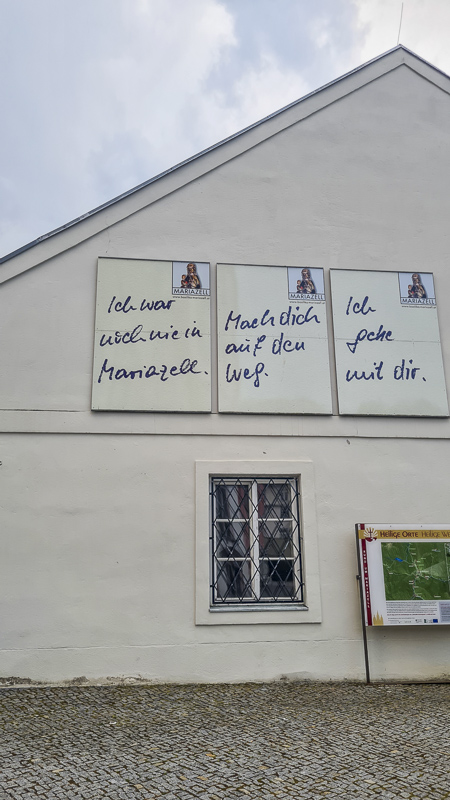 MARIAZELL
Ich war
noch nie in
Mariazell.
MARIAZELL
Mach dich
auf den
Weg.
MARIAZELL
Ich
gehe
mit dir.
HEILIGE ORTE HEILIGE